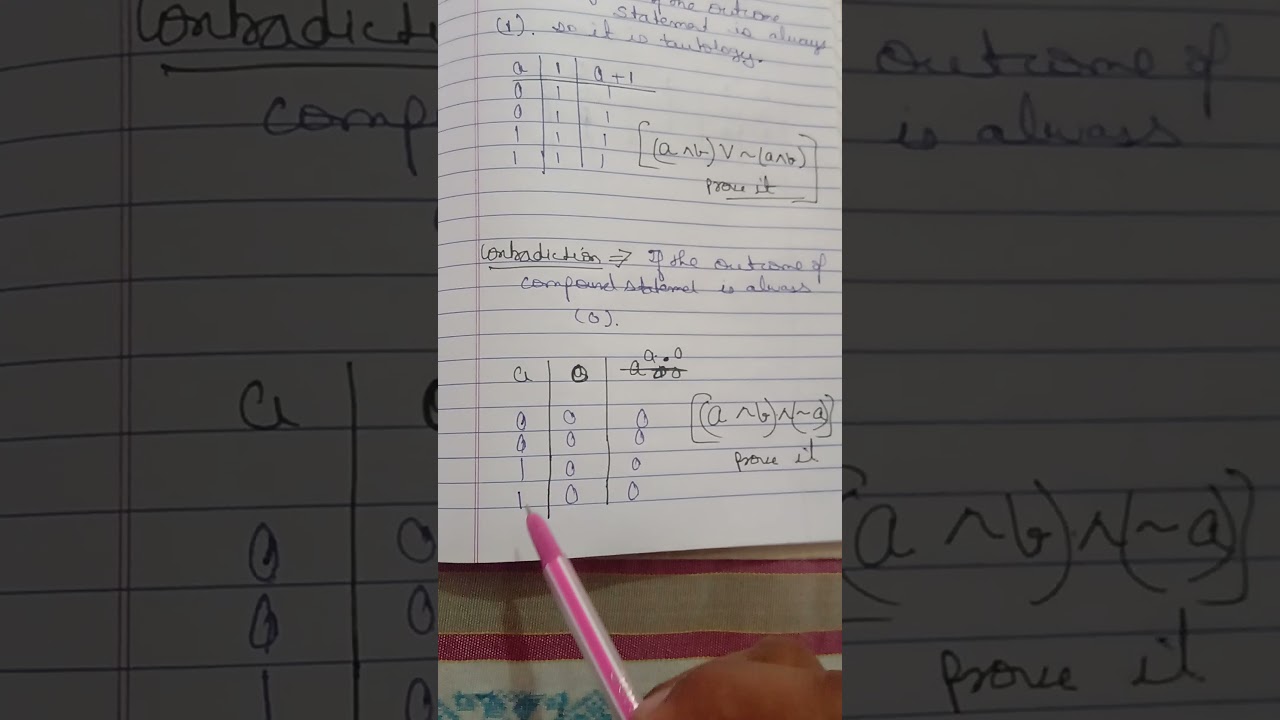 if the outcome
statemed is always
(1). so it is tautology.
a 1 a+1
0 1 1
0 1 1
1 1 1
1 1 1
[(a ∧ b) ∨ ~(a∧b)]
prove it
Contradiction ⇒ If the outcome of
compound statemed is always
(0).
a 0 a.0
0 0 0
0 0 0
1 0 0
1 0 0
[(a ∧ b) ∧ (~a)]
prove it